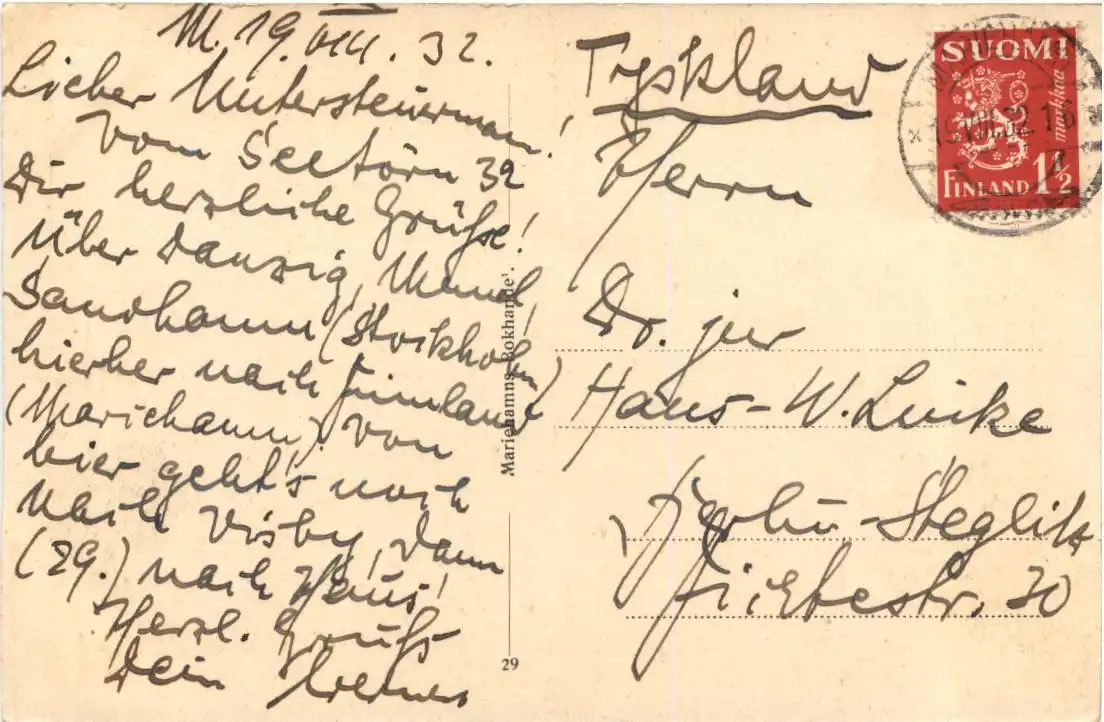 M. 19. VIII. 32.
Lieber Untersteuerman!
vom Seetörn 32
Dir herzliche Grüsse!
Über Danzig,
Sandhamn (Stockholm)
hierher nach Finnland
(Mariehamn). Von
hier geht's noch
nach Visby, dann
(29.) nach Haus!
Herzl. Gruß
Dein Werner
Mariehamns Bokhandel.
29
Tyskland
Herrn
Dr. jur
Hans-W. Lucke
Berlin-Steglitz
Fichtestr. 30
SUOMI
markkaa
FINLAND 1½
19.VIII.32.16